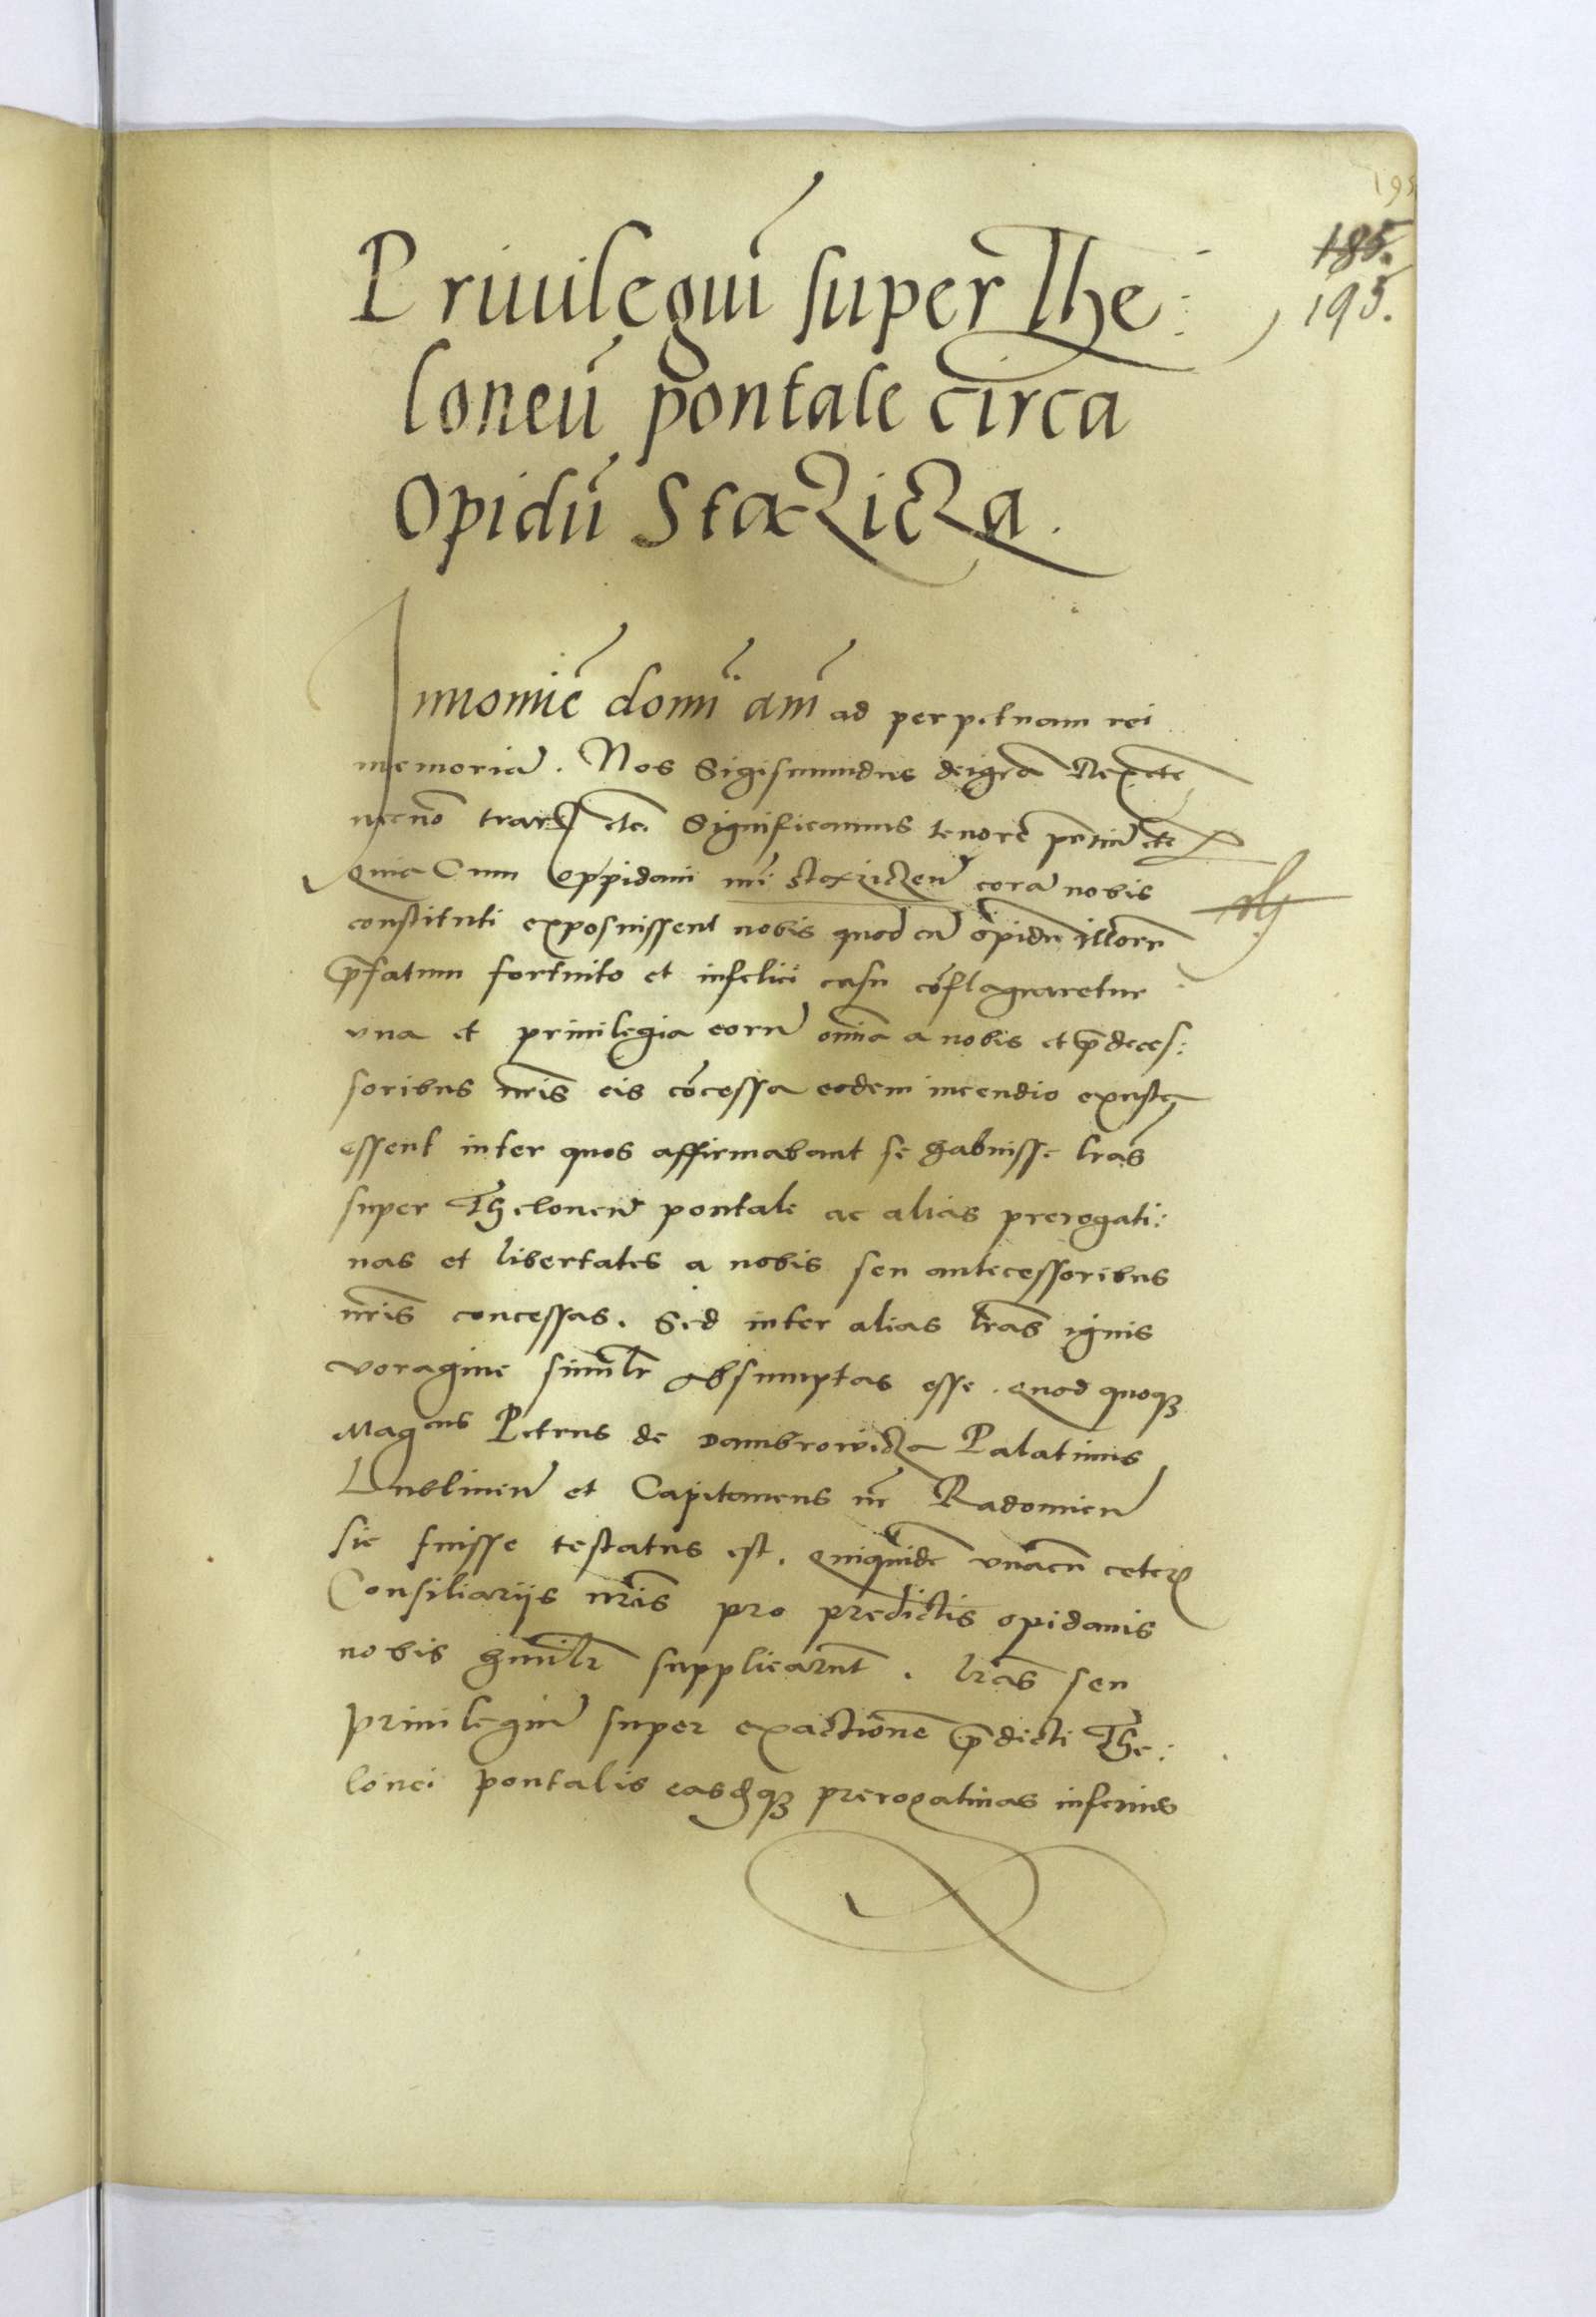 195
185.
195.
Priuilegiũ super The:
loneũ pontale circa
Opidũ StaxZicZa.
Innomiẽ domĩ am̃ ad perpetuam rei
memoriã. Nos Sigismundus deigrã Rex etc̃
necnõ trarũ etc. Significamus tenorẽ pñtiũ etc̃
quia Cum oppidani nr̃i Staxziczeñ corã nobis
constituti exposuissent nobis quod cũ opidũ illorũ
p̃fatum fortuito et infelici casu cõflagraretur
vna et priuilegia eorũ om̃ia a nobis et p̃deces:
soribus nr̃is eis cõcessa eodem incendio exusta
essent inter quos affirmabant se habuisse lrãs
super Theloneũ pontale ac alias prerogati:
uas et libertates a nobis seu antecessoribus
nr̃is concessas. Sed inter alias lrãs ignis
voragine simlr̃ absumptas esse. quod quoqꝫ
Mag^cus Petrus de Dambrowicza Palatinus
Lublineñ et Capitaneus nr̃ Radomieñ
sic fuisse testatus est. quiquidẽ vnacũ ceteris
Consiliarijs nr̃is pro predictis opidanis
nobis humilr̃ supplicarũt. lrãs seu
priuilegiũ super exactionẽ p̃dicti The:
lonei pontalis easdqꝫ prerogatiuas inferius